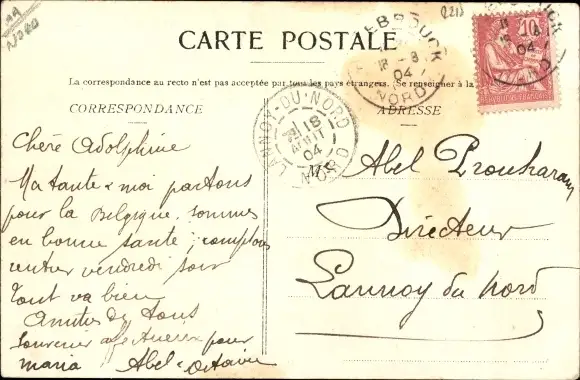 AA
NORD
2213
CARTE POSTALE
La correspondance au recto n'est pas acceptée par tous les pays étrangers. (Se renseigner à la
CORRESPONDANCE
ADRESSE
Chère Adolphine
Ma tante & moi partons
pour la Belgique. sommes
en bonne santé; comptons
rentrer vendredi soir
Tout va bien
Amitiés de tous
Souvenir affectueux pour
maria Abel Octavie
Abel
Directeur
Lannoy du Nord
LANNOY-DU-NORD
18
AOUT
04
NORD
EBROUCK
18 - 8
04
NORD
10
POSTES FRANÇAISES
18 8
04
NORD